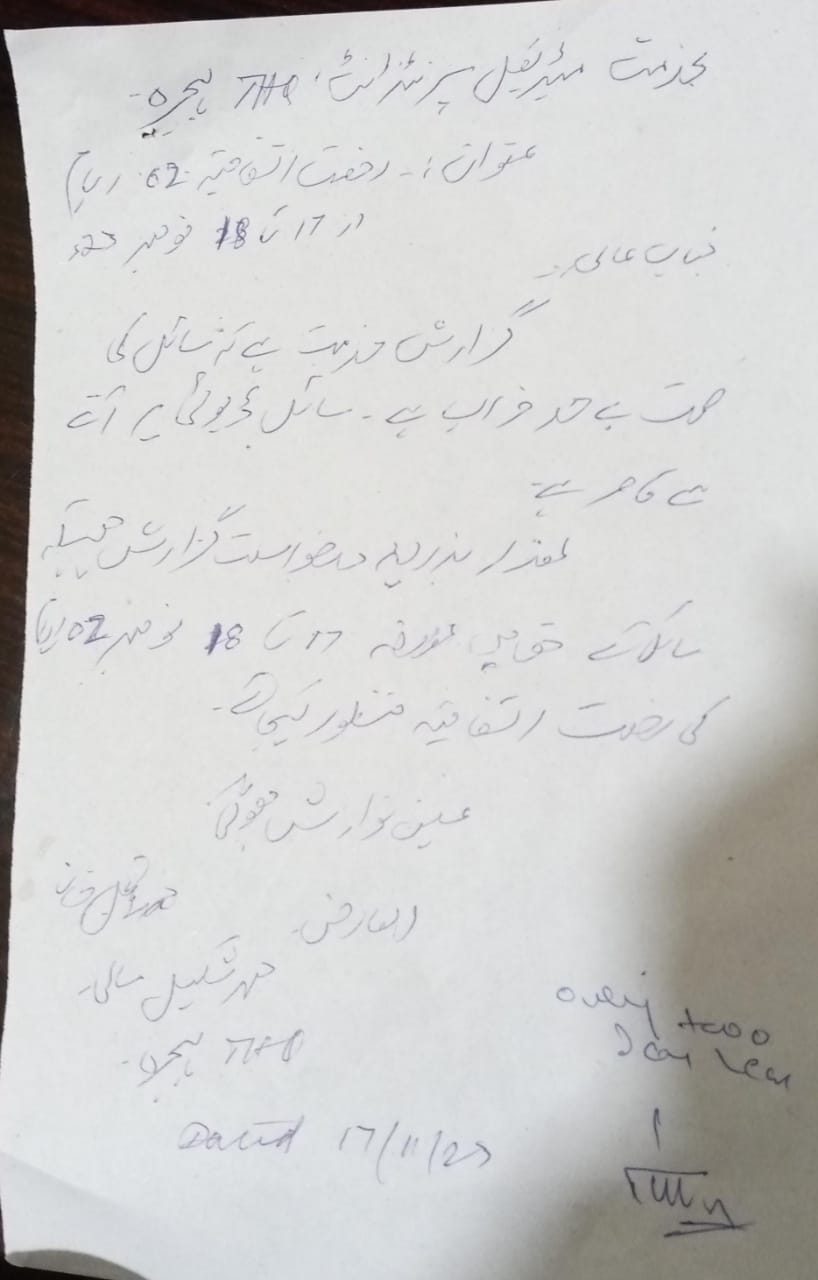 بخدمت میڈیکل سپرنٹنڈنٹ، THQ ہجیرہ۔
عنوان:۔ رخصت اتفاقیہ 02 ایام
از 17 تا 18 نومبر 23ء
جناب عالی۔
گزارش خدمت ہے کہ سائل کی
صحت بے حد خراب ہے۔ سائل ڈیوٹی پر آنے
سے قاصر ہے۔
لہذا بذریعہ درخواست گزارش ہیکہ
سائل کے حق میں مورخہ 17 تا 18 نومبر 02 ایام
کی رخصت اتفاقیہ منظور کیجائے۔
عین نوازش ہوگی
العارض۔
محمد شکیل مالی۔
THQ ہجیرہ۔
Dated 17/11/23
only two